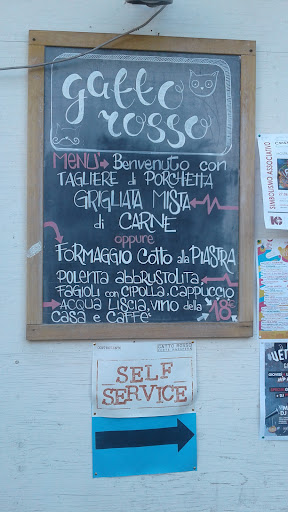 gatto
rosso
MENU Benvenuto con
TAGLIERE di PORCHETTA
GRIGLIATA MISTA
di CARNE
oppure
FORMAGGIO COTTO alla PIASTRA
POLENTA ABBRUSTOLITA
FAGIOLI con CIPOLLA. CAPPUCCIO
ACQUA LISCIA. VINO dela
CASA e CAFFE'
18
GATTO ROSSO
SELF
SERVICE
SIMBOLISMO ASSOCIATIVO